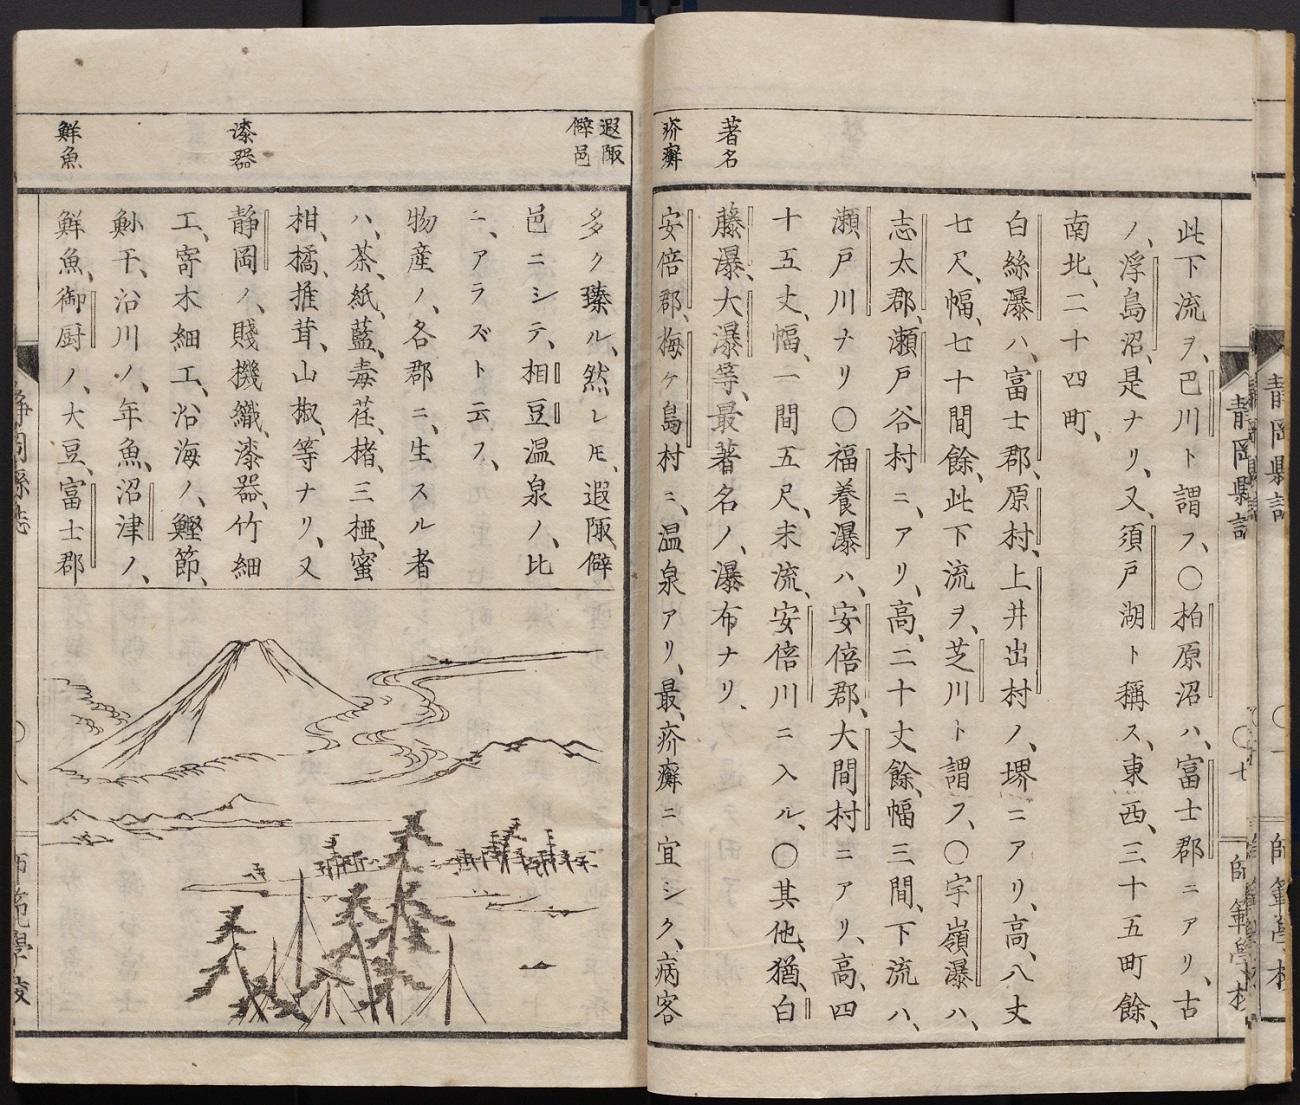 著名
疥癬
此下流ヲ、巴川ト謂フ、〇柏原沼ハ、富士郡ニアリ、古
ノ、浮島沼、是ナリ、又、須戸湖ト稱ス、東西、三十五町餘、
南北、二十四町、
白絲瀑ハ、富士郡、原村、上井出村ノ、堺ニアリ、高、八丈
七尺、幅、七十間餘、此下流ヲ、芝川ト謂フ、〇宇嶺瀑ハ、
志太郡、瀬戸谷村ニ、アリ、高、二十丈餘、幅三間、下流ハ、
瀬戸川ナリ〇福養瀑ハ、安倍郡、大間村ニアリ、高、四
十五丈、幅、一間五尺、末流、安倍川ニ入ル、〇其他、猶、白
藤瀑、大瀑等、最著名ノ、瀑布ナリ、
安倍郡、梅ケ島村ニ、温泉アリ、最、疥癬ニ宜シク、病客
静岡縣誌
〇七
師範學校
遐陬
僻邑
漆器
鮮魚
多ク臻ル、然レ𪜈、遐陬、僻
邑ニシテ、相豆温泉ノ、比
ニ、アラズト云フ、
物産ノ、各郡ニ、生スル者
ハ、茶、紙、藍、毒荏、楮、三椏、蜜
柑、橘、推茸、山椒、等ナリ、又
静岡ノ、賤機織、漆器、竹細
工、寄木細工、沿海ノ、鰹節、
鮂干、沿川ノ、年魚、沼津ノ、
鮮魚、御厨ノ、大豆、富士郡
静岡縣誌
〇八
師範學校